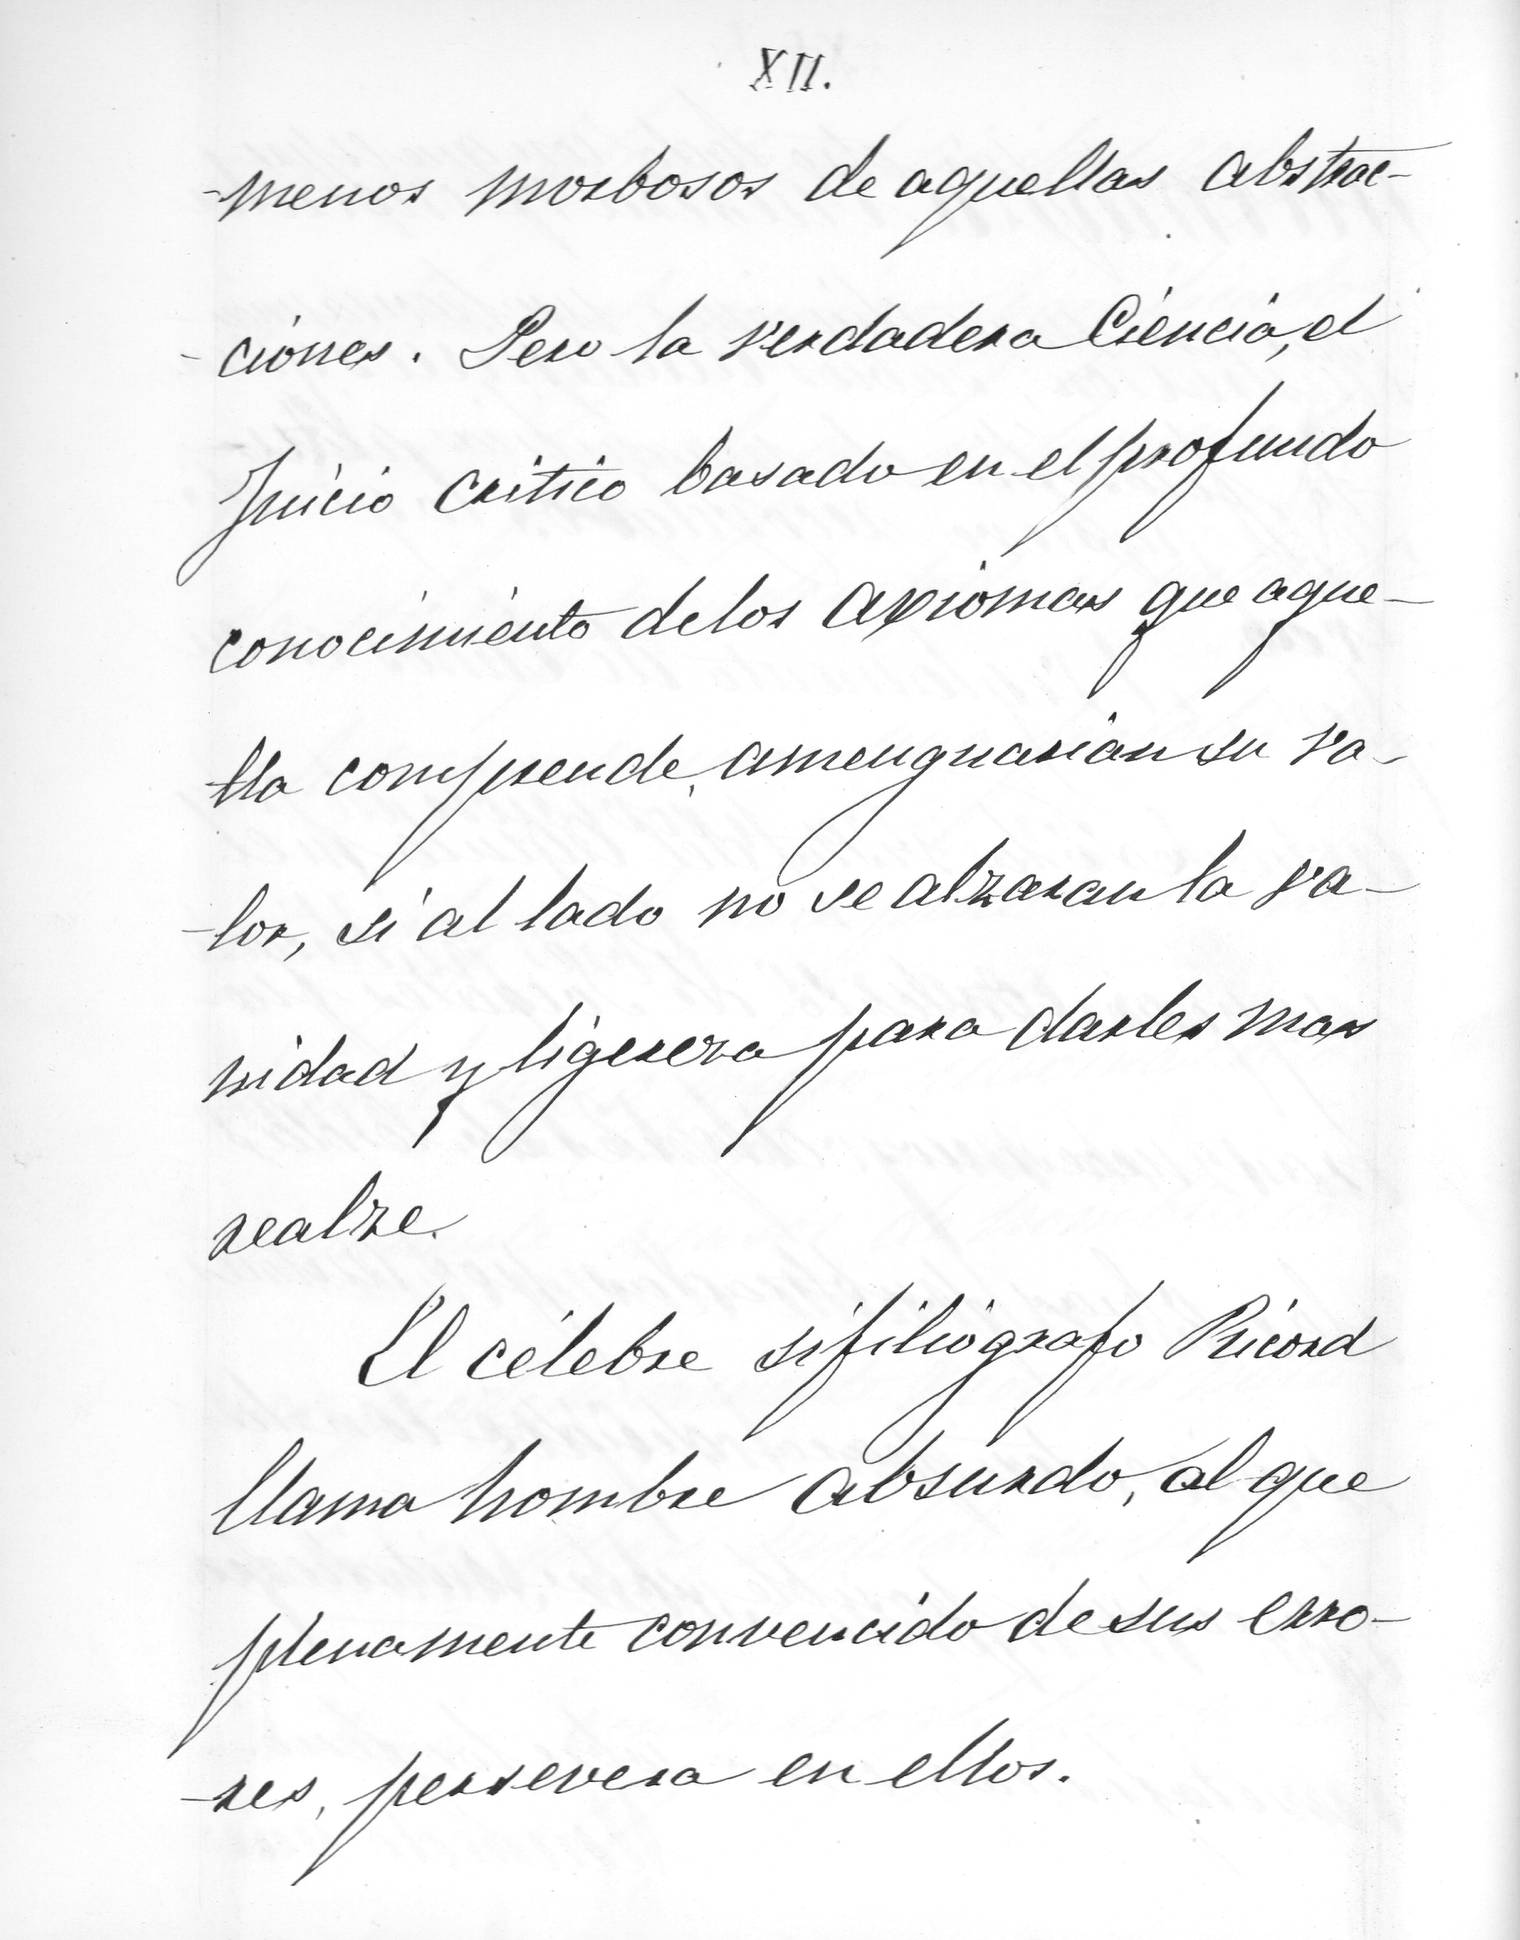 XII.
-menos morbosos de aquellas abstrac-
-ciones. Pero la verdadera Ciencia, el
Juicio critico basado en el profundo
conocimiento de los axiomas que aque-
-lla comprende, amenguarian su va-
-lor, si al lado no se alzaran la va-
nidad y ligereza para darles mas
realze.
El célebre sifiliógrafo Ricord
llama hombre absurdo, al que
plenamente convencido de sus erro-
-res, persevera en ellos.